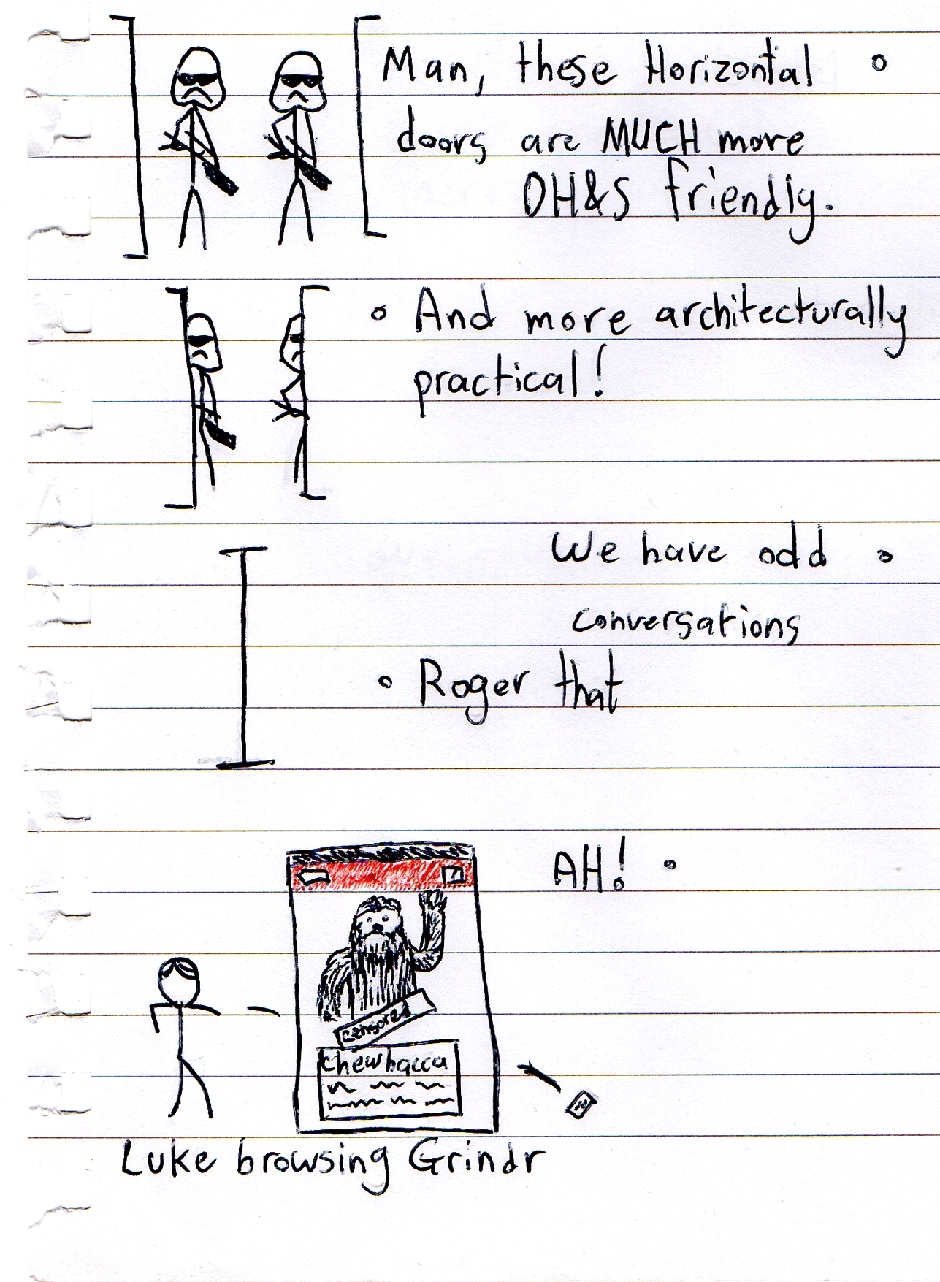 Man, these Horizontal
doors are MUCH more
OH&S friendly.
And more architecturally
practical!
We have odd
conversations
Roger that
AH!
Censored
Chewbacca
Luke browsing Grindr